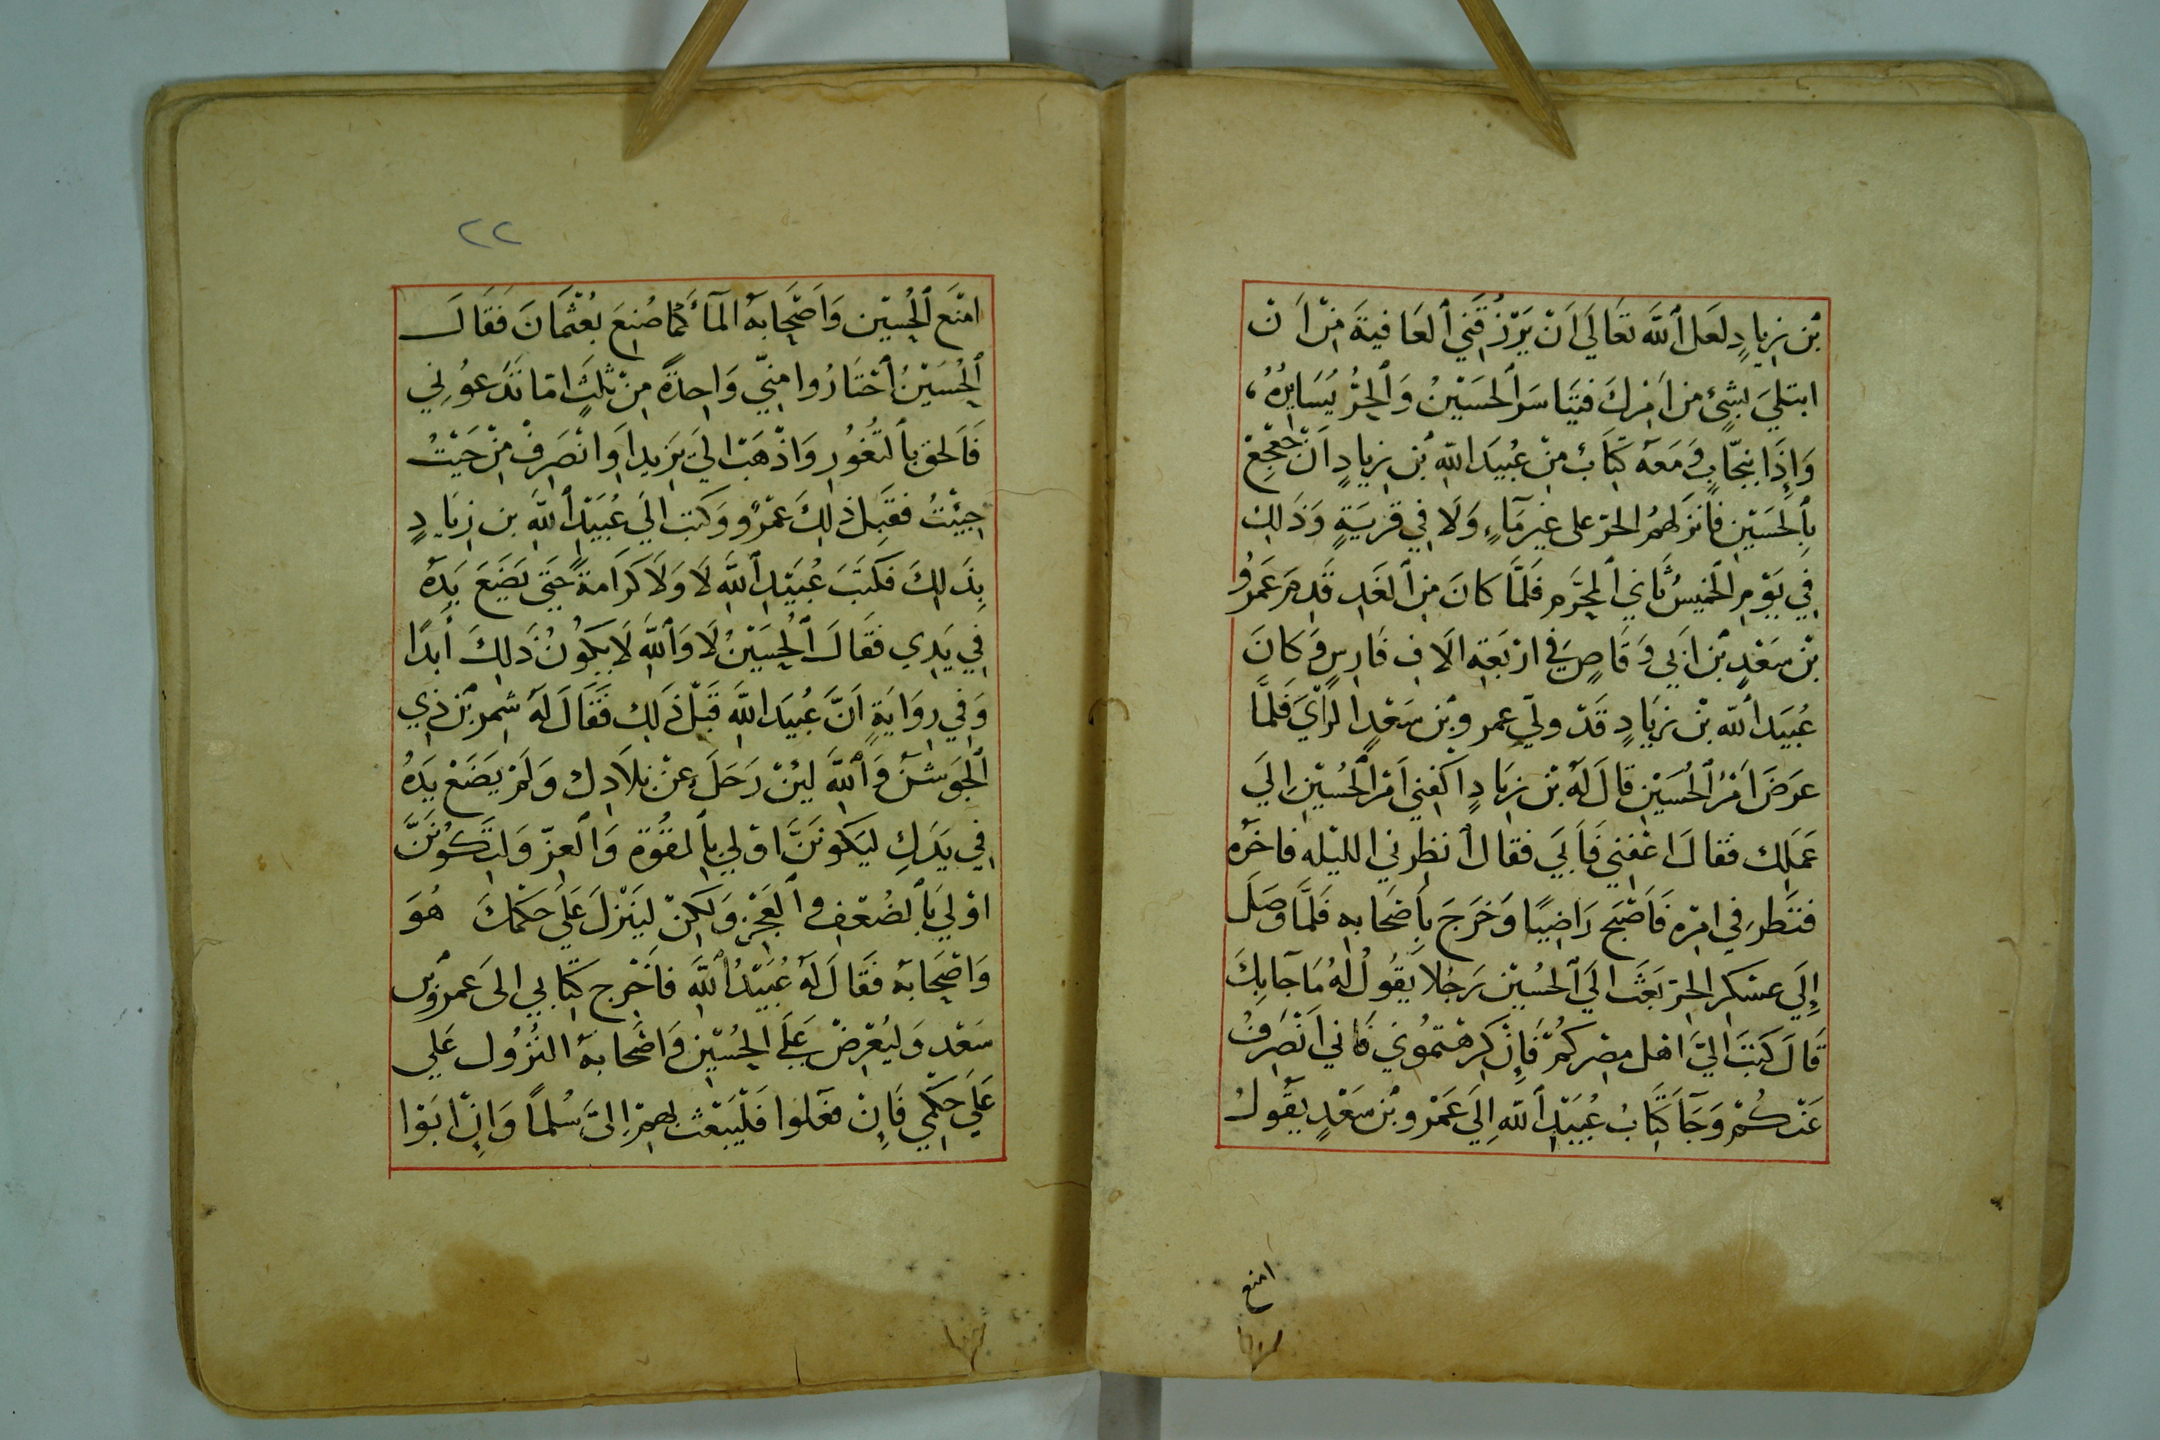 بْن زِيادٍ لعَل ٱللَّه تعَالَي اَنْ يَرْزُقَنِي ٱلعَافيةَ مِنْ اَنْ
ابتلِيَ بشِئٍ من اَمْرِكَ فتيَاسَر ٱلحسَيْنُ وَٱلحُرُّ يُسَايِرُهُ،
وَاِذَا بنجّابٍ وَمَعَهُ كِتَابُ مِنْ عُبيَد اللّهِ بْن زِيادٍ اَنْ جَعْجِعْ
بِٱلحَسَيْنِ فَانزَلهمُ الحر على غيرِ مَآءٍ وَلَا فِي قريَةٍ وَذَلِكَ
فِي يَوْمِ الخَمِيسُ ثَانِي ٱلمحَرَّم فَلمَّا كانَ مِن ٱلغَدِ قَدِمَ عَمْرُو
بْن سَعْدٍ بْن ابَي وَقاصٍ فِي ارْبَعَةِ الَافِ فَارِسٍ وَكانَ
عُبيَد ٱللّه بْن زيَادٍ قَدْ ولّي عمرو بْن سَعْدٍ الرَّايَ فَلمَّا
عرَضَ اَمْرُ ٱلحُسَيْنِ قالَ لَهُ بْن زِيَادٍ اكفنِي اَمْر ٱلحُسَيْنِ اِلَي
عَمَلِك فقالَ اعْفنِي فَاَبَي فقالَ اُنظِرنِي الليْله فاخَّرَه
فنَظر فِي امْرِه فَاَصْبَح رَاضِيًا وَخرَجَ بِاَصْحَابِه فَلمَّا وَصَلَ
إِلَي عسْكر الحرّ بعَثَ اِلَي ٱلحُسَيْن رَجُلاً يقُولُ لَهُ مَا جآ بِكَ
قَالَ كَتبَ اِليَّ اهْل مصْركُمْ فَاِنْ كَرِهْتمُونِي فَانِي اَنصَرِفُ
عَنْكُمْ وَجَآ كِتَابُ عُبَيْدِ ٱللّهِ اِلَي عَمْرو بْن سَعْدٍ يَقُولُ
امنع
٢٢
امْنَع ٱلحُسَيْن وَاَصْحَابهُ المآءَ كمَا صُنِعَ بعُثْمَانَ فَقَالَ
ٱلحُسَيْنُ ٱخْتَارُوا مِنِّي وَاحِدَةً مِنْ ثَلثٍ امّا تَدَعُونِي
فَاَلحَق بِٱلثُّغُورِ وَاَذْهَبْ اِلَي يَزِيد اَوَانْصَرِفْ مِنْ حَيْثُ
جِيْتُ فقَبِل ذلِكَ عَمْرُو وَكتب اِلَي عُبَيْدِ ٱللَّه بن زِيَادٍ
بِذَلِكَ فَكتَبَ عُبَيْدِ ٱللَّهِ لَا وَلَا كَرَامَةً حَتّى يَضَعَ يَدَهُ
فِي يَدِي فَقالَ ٱلحُسَيْنُ لَا وَٱللَّهِ لَا يكُونُ ذَلِكَ اَبدًا
وَفِي رِوَايَةٍ اَنَّ عُبيَد اللَّه قَبلَ ذَلِك فَقَالَ لَهُ شِمر بْن ذِي
ٱلجَوشنْ وَٱللَّهِ ليْن رَحَلَ عِنْ بِلَادِك وَلَمْ يَضَعْ يَدَهُ
فِي يَدِكِ ليَكونَنَّ اوْلي بِٱلقُوَّةِ وَٱلعِزّ وَلتَكُونَنَّ
اوْلي بٱلضُعْفِ وٱلعَجْز وَلكِنْ ليَنْزِلَ عَلَي حكمك هُوَ
وَاصْحَابهُ فَقالَ لَهُ عُبَيْدُ ٱللَّهِ فاَخْرج كِتَابي الى عَمرو بْن
سَعْد وَليُعْرِضْ عَلَي الحُسَيْنِ وَاصْحَابهُ النُزُولِ عَلي
عَلَي حُكْمِي فَاِنْ فعَلوا فَلْيَبْعَث بِهِمْ اِلىَّ سُلماً وَاِنْ ابَوْا